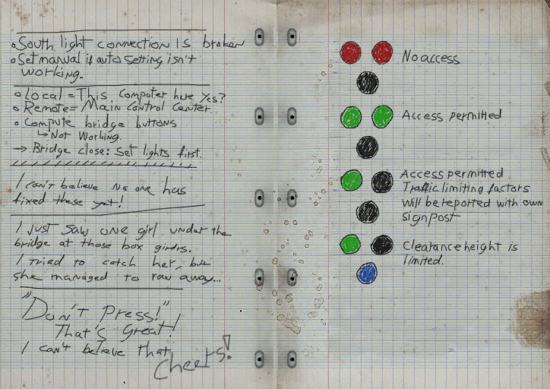 South light connection is broken
Set manual if auto setting isn't
working.
Local = This Computer here Yes?
Remote = Main Control Center
Compute bridge buttons
Not working.
Bridge close: Set lights first.
I can't believe no one has
fixed these yet!
I just saw one girl under the
bridge at those box girdrs.
I tried to catch her, but
she managed to row away...
"Don't Press!"
That's Great!
I can't believe that
Cheers!
No access
Access permitted
Access permitted
Traffic limiting factors
will be reported with own
sign post
Clearance height is
limited.